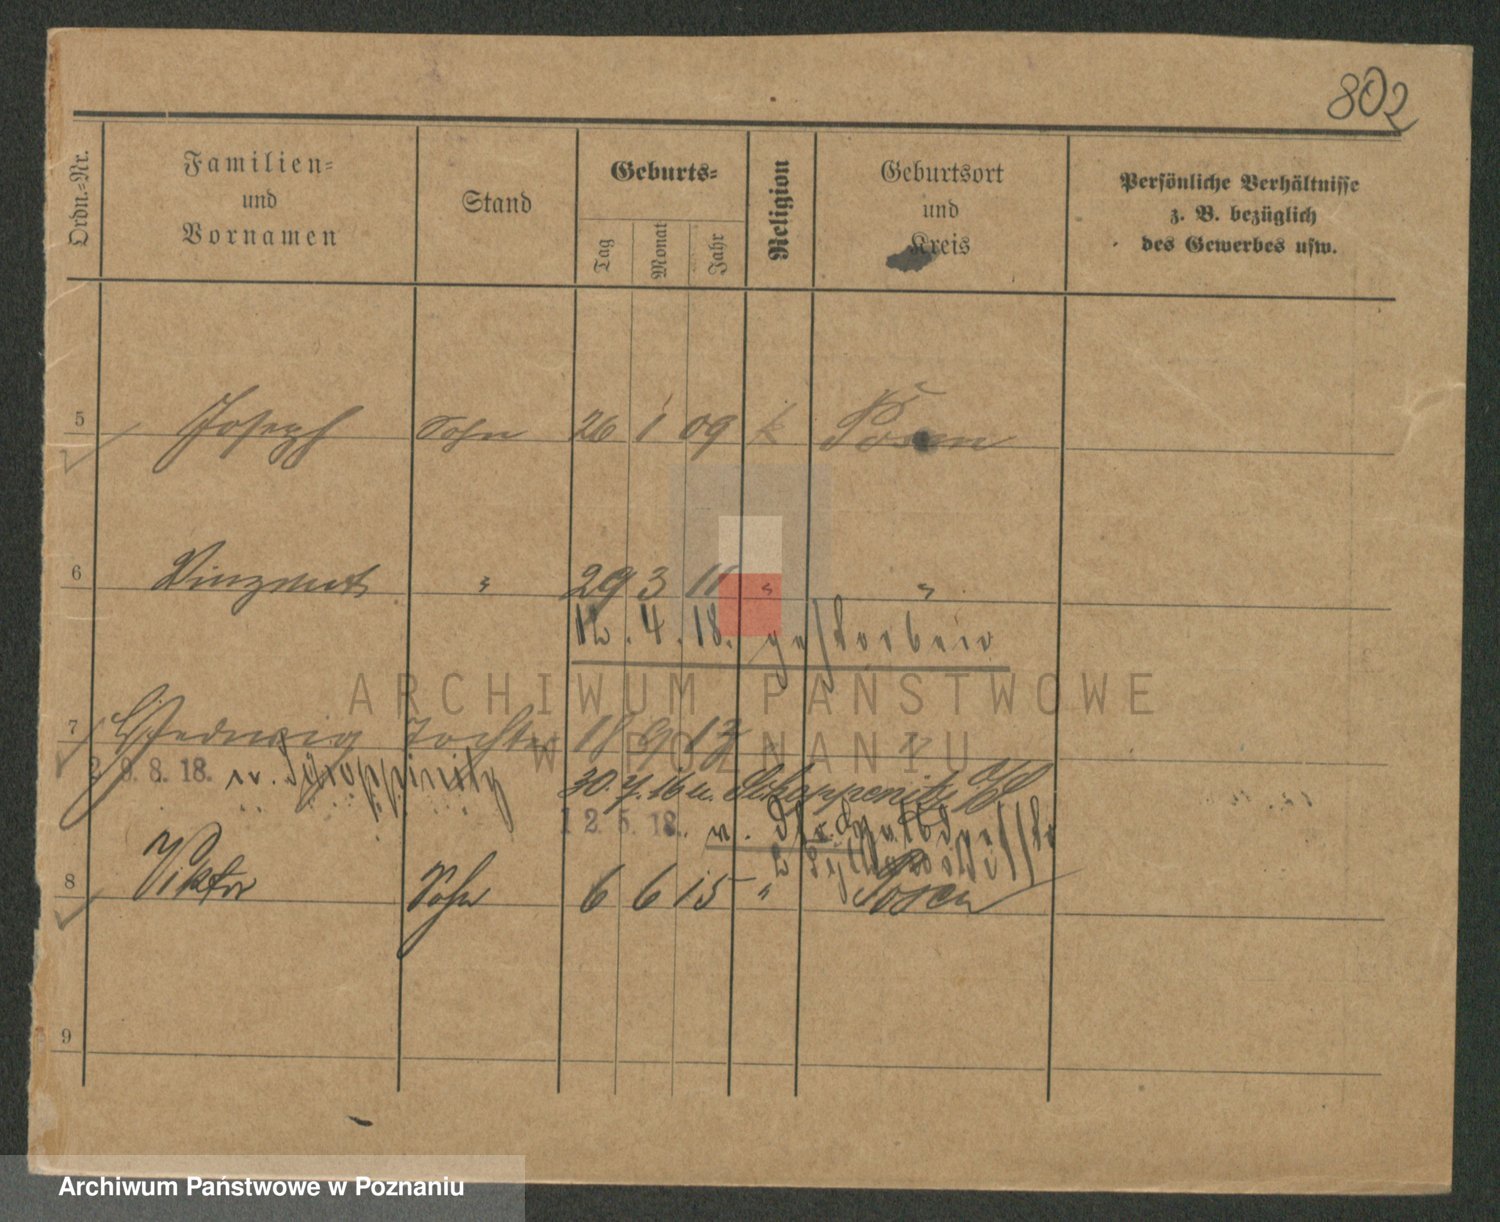 802
Ordn.=Nr.
Familien=
und
Vornamen
Stand
Geburts=
Tag
Monat
Jahr
Religion
Geburtsort
und
Kreis
Persönliche Verhältnisse
z. B. bezüglich
des Gewerbes usw.
5 Joseph Sohn 26 1 09 k Posen
6 Vinzent " 29 3 11 " "
12.4.18. gestorben
ARCHIWUM PAŃSTWOWE
7 Hedwig Tochter 18 9 13 " "
W POZNANIU
9.8.18. v.
30.7.16 u.
12.5.18. v.
8 Viktor Sohn 6 6 15 " Posen
9
Archiwum Państwowe w Poznaniu